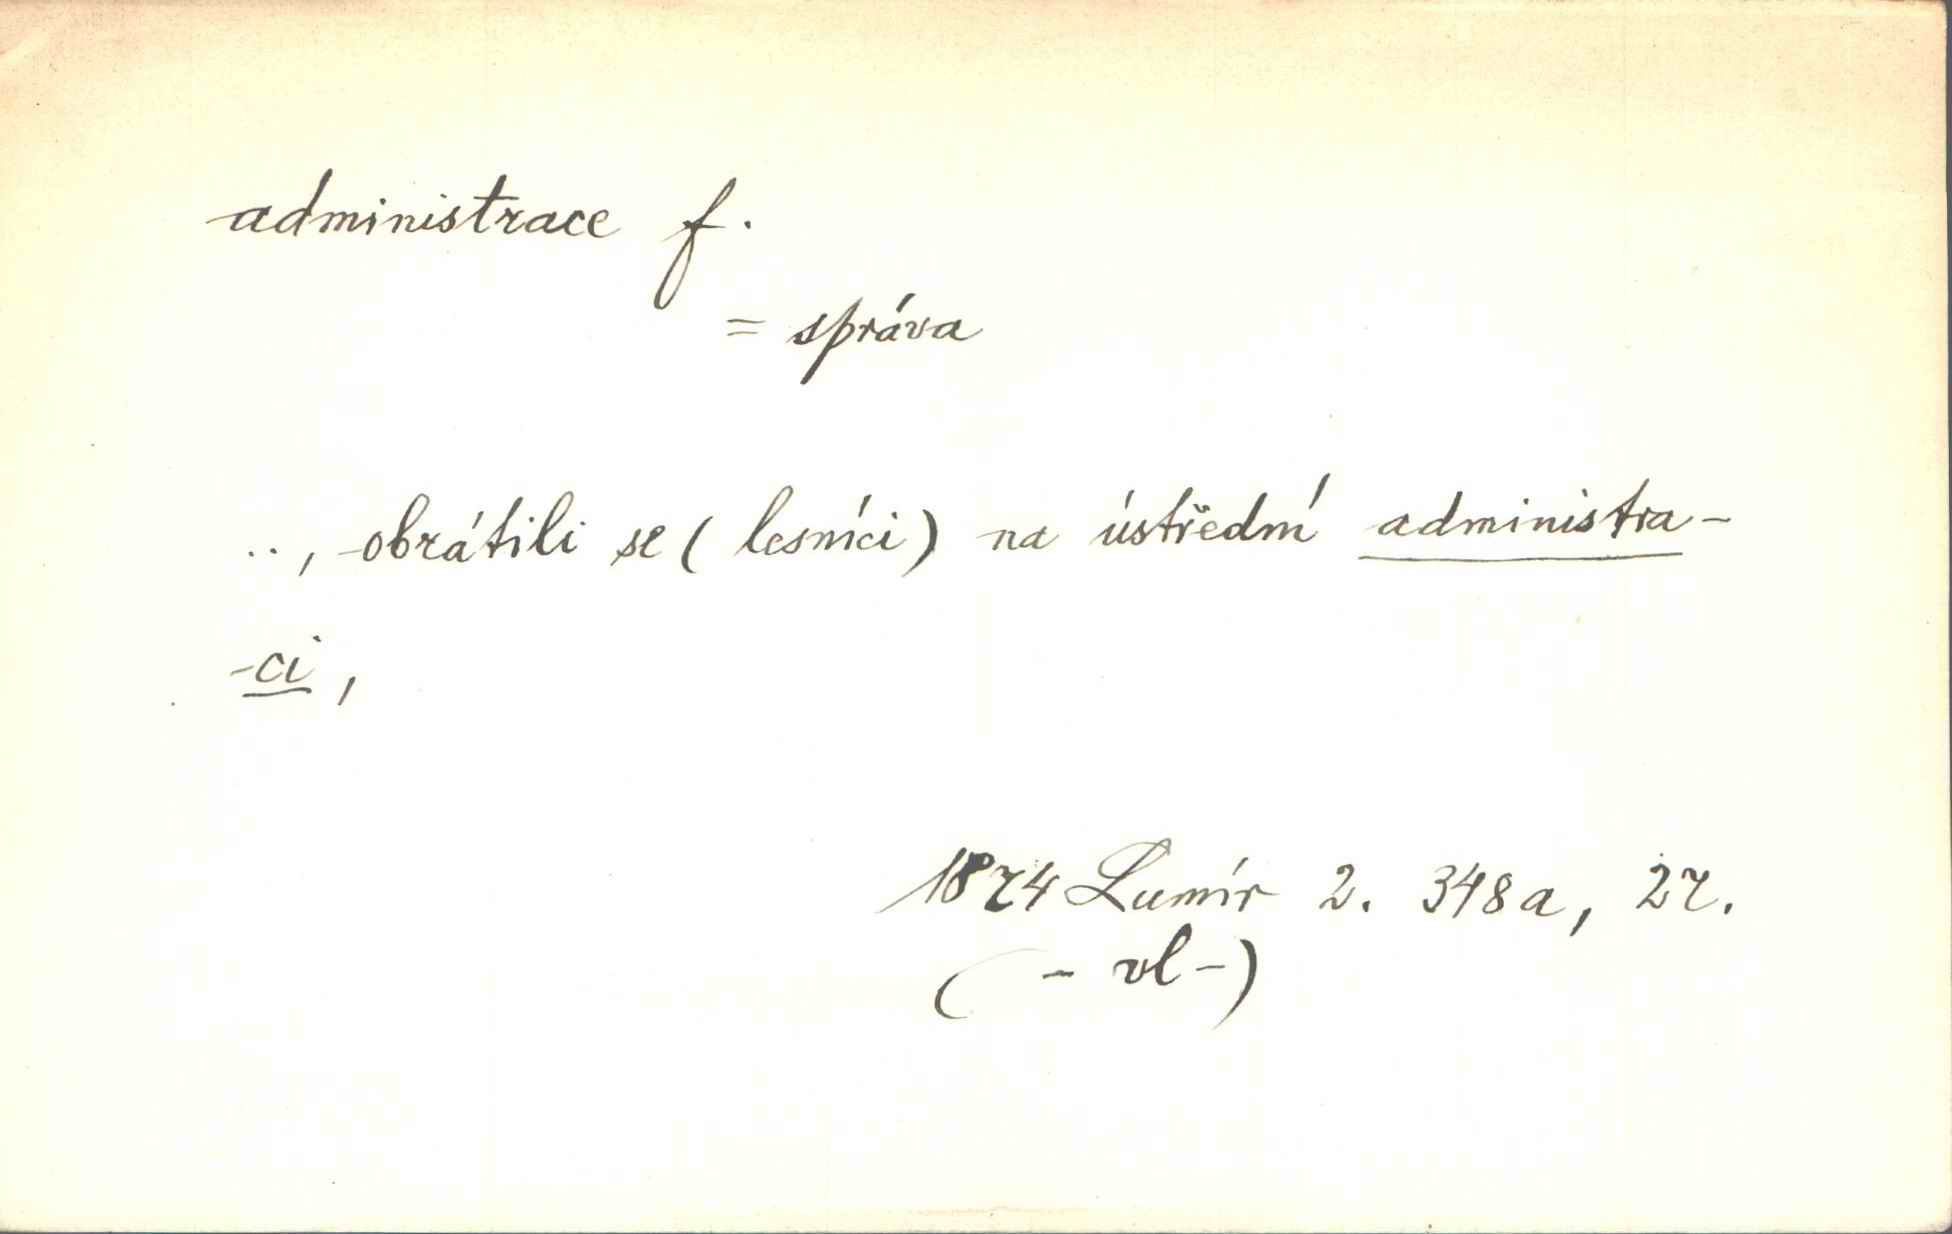 administrace f.
= správa
.., obrátili se (lesníci) na ústřední administra-
-ci,
1874 Lumír 2. 348a, 27.
(- vl -)